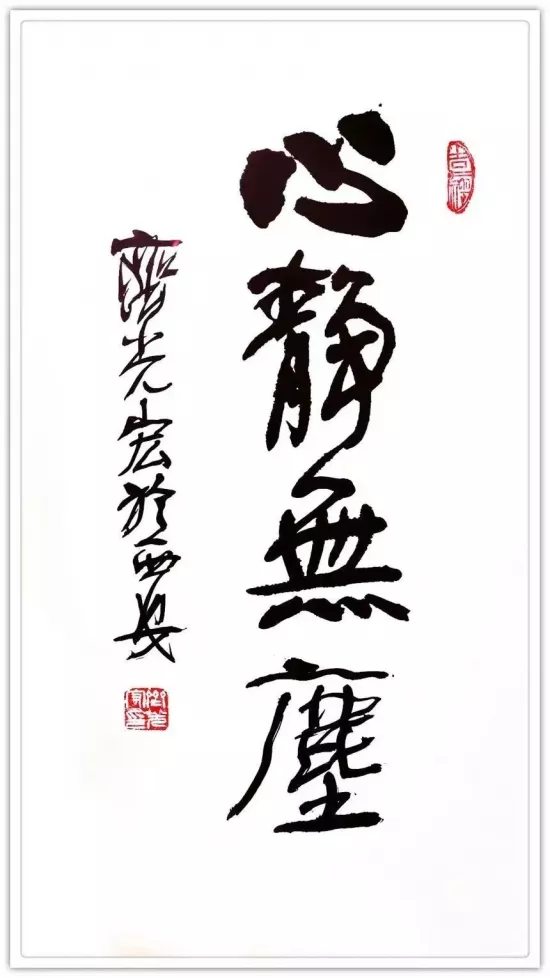 心靜無塵
光宏於西